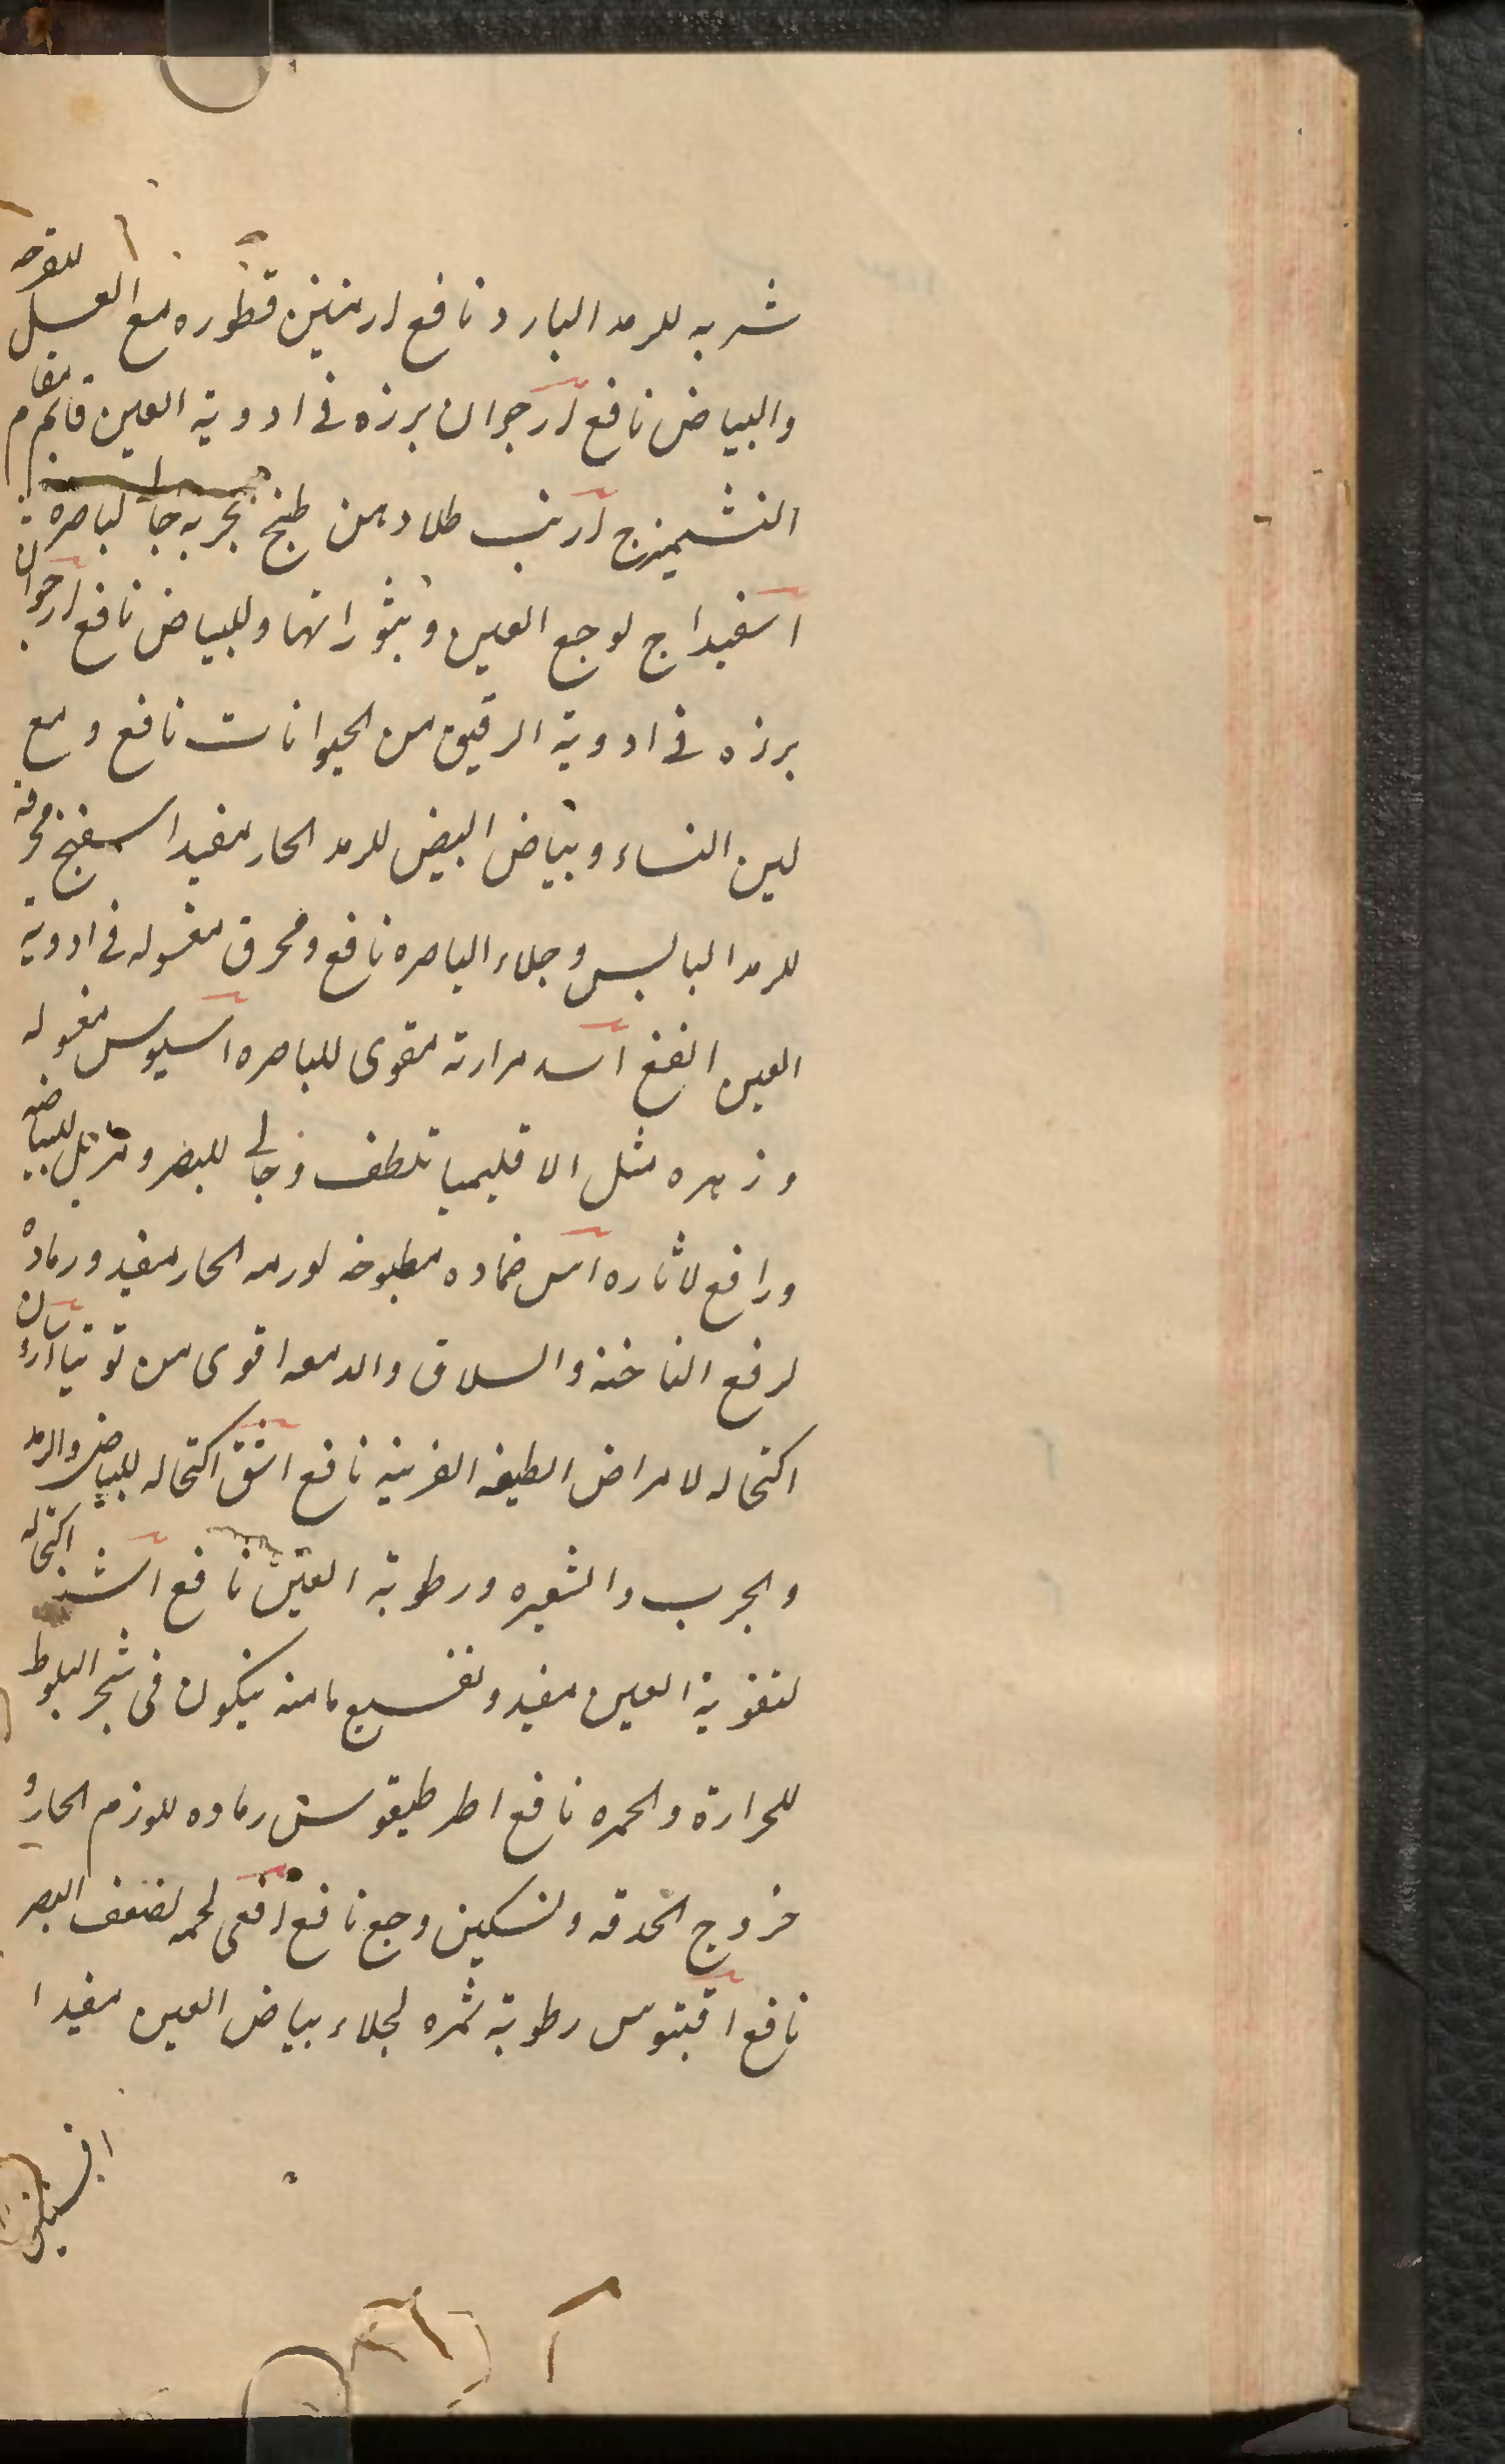 شربه للرمد البارد نافع ارمنين قطوره مع العسل للقرحه
والبياض نافع ارجوان برزه فى ادوية العين قايم مقام
التشميزج ارنب طلا دهن طبخ بحربه جا لباصره
اسفيداج لوجع العين وبثوراتها وللبياض نافع ارجوان
برزه فى ادوية الرقيق من الحيوانات نافع ومع
لبن النساء وبياض البيض للرمد الحار مفيد اسفنج محرقه
للرمد اليابس وجلاء الباصره نافع ومحرق مغسوله فى ادوية
العين انفع اسد مرارته مقوى للباصره اسيوس مغسوله
وزهره مثل الاقليميا تلطف وجالى للبصر ومزيل للبياضه
ورافع لاثاره اس ضماده مطبوخه لورمه الحار مفيد ورماده
لرفع الناخنه والسلاق والدمعه اقوى من توتيا
اكتحاله لامراض الطبقه القرنيه نافع اشق اكتحاله للبياض والرمد
والجرب والشعيره ورطوبة العين نافع اشنه اكتحاله
لتقوية العين مفيد ونقسيع مامنه يتكون فى شجر البلوط
للحرارة والحمره نافع اطرطيقوس رماده للورم الحار و
خروج الحدقه وتسكين وجع نافع افعى لحمه لضعف البصر
نافع اقبتوس رطوبة ثمره لجلاء بياض العين مفيد ا